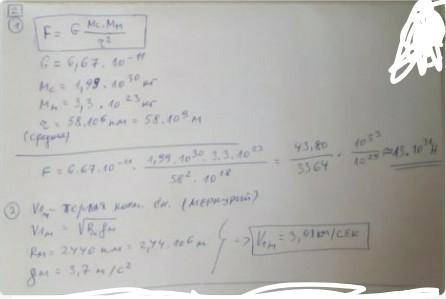 2
① F = G Mc·Mм / r²
G = 6,67·10⁻¹¹
Mc = 1,99·10³⁰ кг
Mм = 3,3·10²³ кг
r = 58·10⁶ км = 58·10⁹ м
(средний)
F = 6.67·10⁻¹¹ · 1,99·10³⁰·3.3·10²³ / 58²·10¹⁸ = 43,80 / 3364 · 10⁵³ / 10²⁹ ≈
② V1м - первая косм. ск. (Меркурий)
V1м = √Rмgм
Rм = 2440 км = 2,44·10⁶ м
=> V1м = 3,01 км/сек
gм = 3,7 м/с²